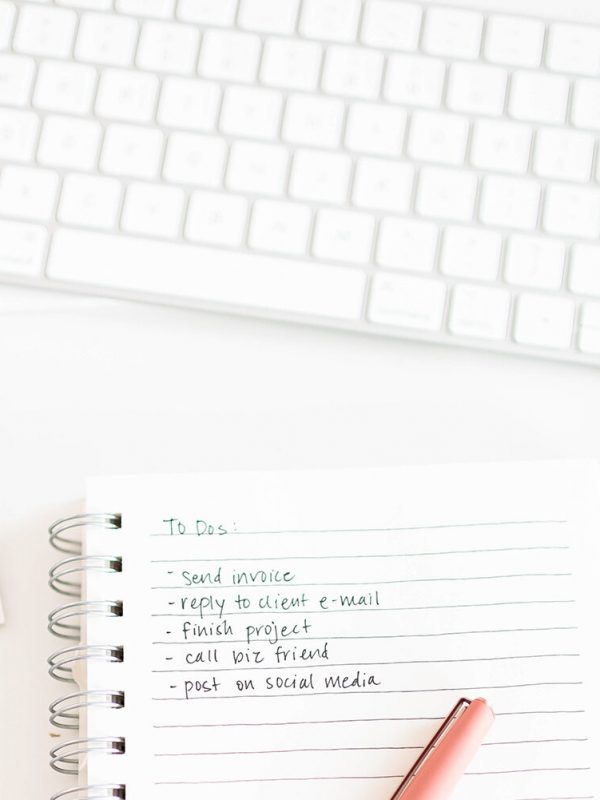 To Dos:
- send invoice
- reply to client e-mail
- finish project
- call biz friend
- post on social media